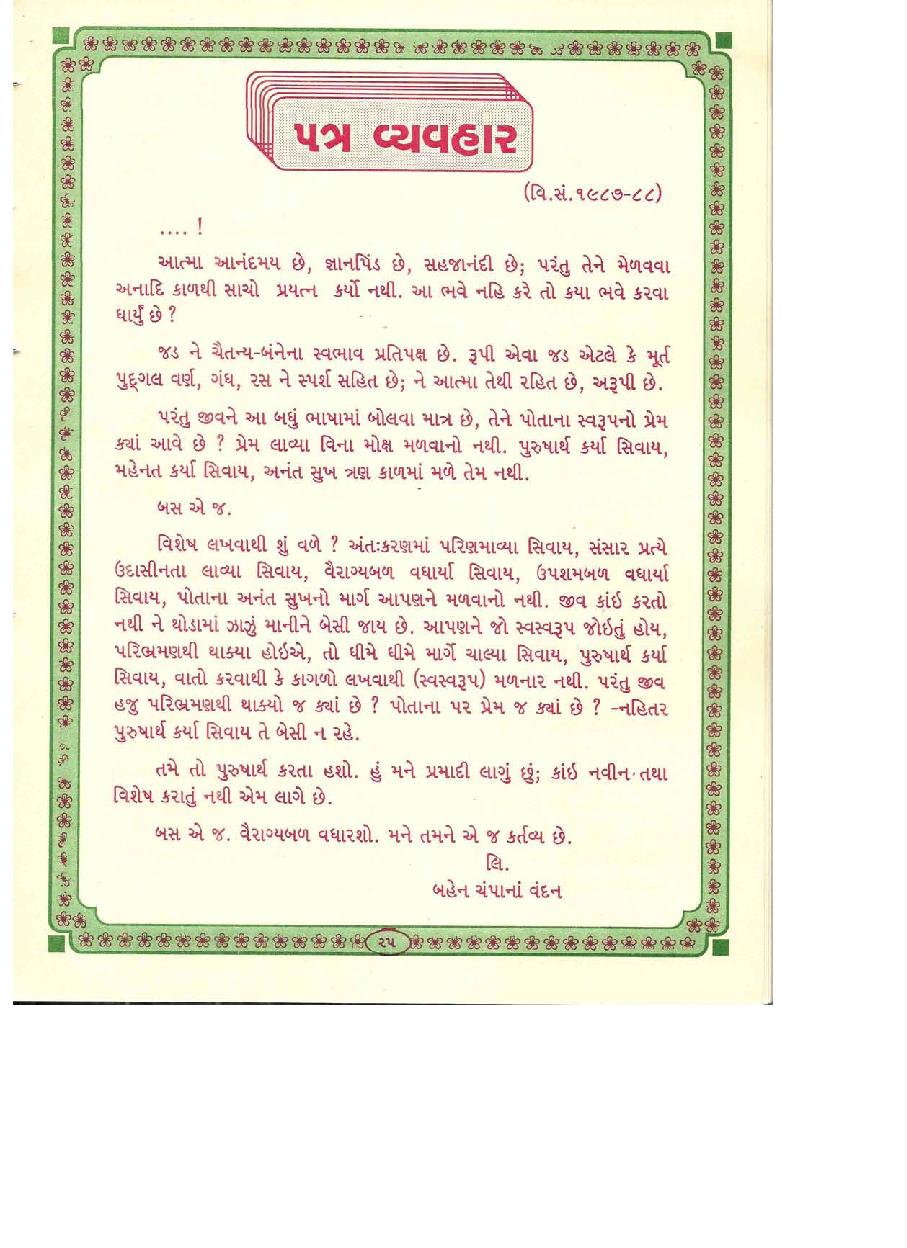 પત્ર વ્યવહાર
(વિ.સં.૧૯૮૭-૮૮)
.... !
આત્મા આનંદમય છે, જ્ઞાનપિંડ છે, સહજાનંદી છે; પરંતુ તેને મેળવવા
અનાદિ કાળથી સાચો પ્રયત્ન કર્યો નથી. આ ભવે નહિ કરે તો કયા ભવે કરવા
ધાર્યું છે ?
જડ ને ચૈતન્ય-બંનેના સ્વભાવ પ્રતિપક્ષ છે. રૂપી એવા જડ એટલે કે મૂર્ત
પુદ્ગલ વર્ણ, ગંધ, રસ ને સ્પર્શ સહિત છે; ને આત્મા તેથી રહિત છે, અરૂપી છે.
પરંતુ જીવને આ બધું ભાષામાં બોલવા માત્ર છે, તેને પોતાના સ્વરૂપનો પ્રેમ
ક્યાં આવે છે ? પ્રેમ લાવ્યા વિના મોક્ષ મળવાનો નથી. પુરુષાર્થ કર્યા સિવાય,
મહેનત કર્યા સિવાય, અનંત સુખ ત્રણ કાળમાં મળે તેમ નથી.
બસ એ જ.
વિશેષ લખવાથી શું વળે ? અંતઃકરણમાં પરિણમાવ્યા સિવાય, સંસાર પ્રત્યે
ઉદાસીનતા લાવ્યા સિવાય, વૈરાગ્યબળ વધાર્યા સિવાય, ઉપશમબળ વધાર્યા
સિવાય, પોતાના અનંત સુખનો માર્ગ આપણને મળવાનો નથી. જીવ કાંઇ કરતો
નથી ને થોડામાં ઝાઝું માનીને બેસી જાય છે. આપણને જો સ્વસ્વરૂપ જોઇતું હોય,
પરિભ્રમણથી થાક્યા હોઇએ, તો ધીમે ધીમે માર્ગે ચાલ્યા સિવાય, પુરુષાર્થ કર્યા
સિવાય, વાતો કરવાથી કે કાગળો લખવાથી (સ્વસ્વરૂપ) મળનાર નથી. પરંતુ જીવ
હજુ પરિભ્રમણથી થાક્યો જ ક્યાં છે ? પોતાના પર પ્રેમ જ ક્યાં છે ? -નહિતર
પુરુષાર્થ કર્યા સિવાય તે બેસી ન રહે.
તમે તો પુરુષાર્થ કરતા હશો. હું મને પ્રમાદી લાગું છું; કાંઇ નવીન તથા
વિશેષ કરાતું નથી એમ લાગે છે.
બસ એ જ. વૈરાગ્યબળ વધારશો. મને તમને એ જ કર્તવ્ય છે.
લિ.
બહેન ચંપાનાં વંદન
૨૫